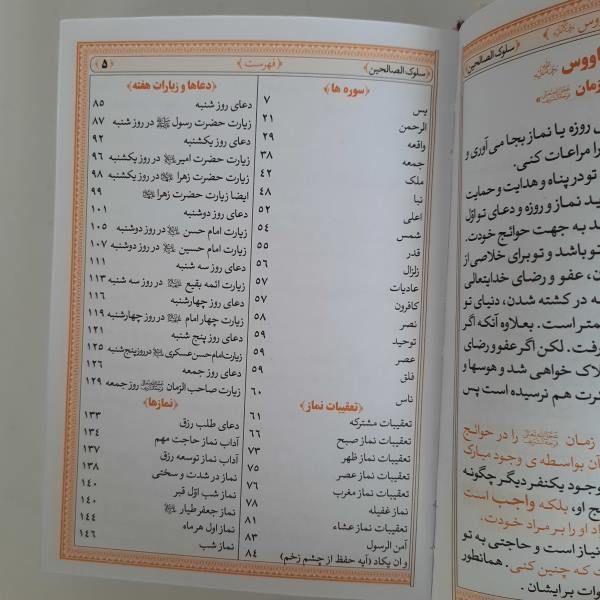 سلوک الصالحین
فهرست
۵
سوره ها
یس ۷
الرحمن ۲۱
واقعه ۲۹
جمعه ۳۸
ملک ۴۲
نبا ۴۸
اعلی ۵۲
شمس ۵۴
قدر ۵۵
زلزال ۵۶
عادیات ۵۷
کافرون ۵۷
نصر ۵۸
توحید ۵۹
عصر ۵۹
فلق ۵۹
ناس ۶۰
تعقیبات نماز
تعقیبات مشترکه ۶۱
تعقیبات نماز صبح ۶۶
تعقیبات نماز ظهر ۷۳
تعقیبات نماز عصر ۷۵
تعقیبات نماز مغرب ۷۶
نماز غفیله ۷۸
تعقیبات نماز عشاء ۸۱
آمن الرسول ۸۳
و ان یکاد (آیه حفظ از چشم زخم) ۸۴
دعاها و زیارات هفته
دعای روز شنبه ۸۵
زیارت حضرت رسول ﷺ در روز شنبه ۸۷
دعای روز یکشنبه ۹۲
زیارت حضرت امیر در روز یکشنبه ۹۶
زیارت حضرت زهرا در روز یکشنبه ۹۸
ایضا زیارت حضرت زهرا ۹۹
دعای روز دوشنبه ۱۰۱
زیارت امام حسن در روز دوشنبه ۱۰۵
زیارت امام حسین در روز دوشنبه ۱۰۷
دعای روز سه شنبه ۱۱۱
زیارت ائمه بقیع در روز سه شنبه ۱۱۳
دعای روز چهارشنبه ۱۱۶
زیارت چهار امام در روز چهارشنبه ۱۱۹
دعای روز پنج شنبه ۱۲۱
زیارت امام حسن عسکری در روز پنج شنبه ۱۲۵
دعای روز جمعه ۱۲۶
زیارت صاحب الزمان روز جمعه ۱۲۹
نمازها
دعای طلب رزق ۱۳۳
آداب نماز حاجت مهم ۱۳۴
آداب نماز توسعه رزق ۱۳۷
نماز در شدت و سختی ۱۳۸
نماز شب اوّل قبر ۱۴۰
نماز جعفر طیار ۱۴۰
نماز اول هرماه ۱۴۴
نماز شب ۱۴۶
سلوک الصالحین
اووس
زمان
روزه یا نماز بجا می آوری و
را مراعات کنی.
تو در پناه و هدایت و حمایت
ید نماز و روزه و دعای تو اوّل
د به جهت حوائج خودت.
تو باشد و تو برای خلاصی از
ن، عفو و رضای خدایتعالی
ه در کشته شدن، دنیای تو
متر است. بعلاوه آنکه اگر
رفت. لکن اگر عفو و رضای
لاک خواهی شد و هوسها و
خرت هم نرسیده است پس
زمان را در حوائج
آن بواسطه ی وجود مبارک
وجود یکنفر دیگر چگونه
ج او، بلکه واجب است
اد او را بر مراد خودت.
نیاز است و حاجتی به تو
ت که چنین کنی. همانطور
وات برایشان.